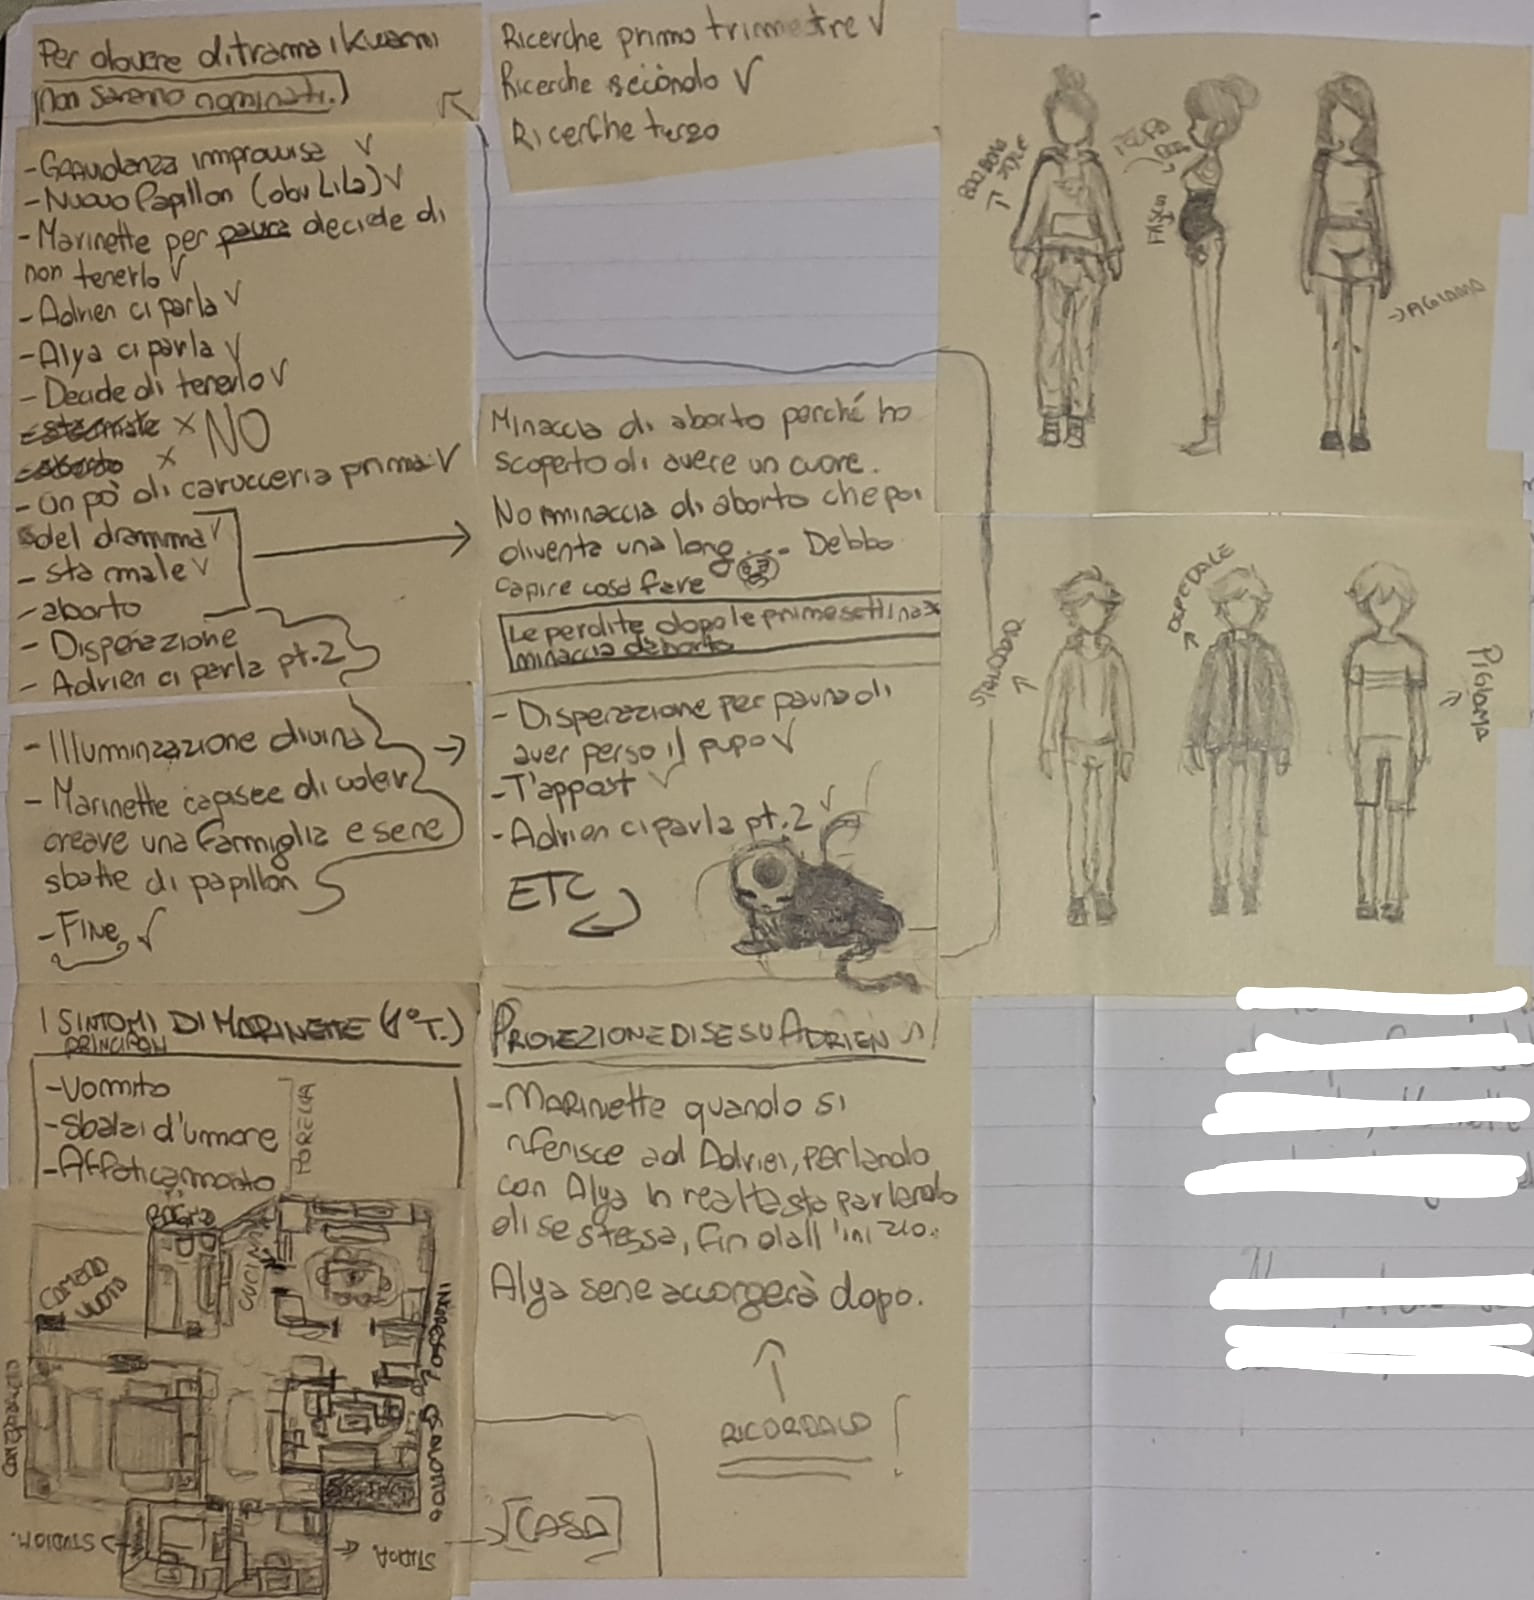 Per dovere di trama i Kwami
(non saranno nominati.)
Ricerche primo trimestre √
Ricerche secondo √
Ricerche terzo
- Gravidanza improvvisa √
- Nuovo Papillon (obv Lila) √
- Marinette per paura decide di
non tenerlo √
- Adrien ci parla √
- Alya ci parla √
- Decide di tenerlo √
- sta male × NO
- aborto ×
- un pò di carucceria prima √
del dramma √
- sta male √
- aborto
- Disperazione
- Adrien ci parla pt.2
- Illuminzazione divina
- Marinette capisce di voler
creare una famiglia e se ne
sbatte di papillon
- Fine √
Minaccia di aborto perché ho
scoperto di avere un cuore.
No minaccia di aborto che poi
diventa una long .... Debbo
capire cosa fare
Le perdite dopo le prime sett in
minaccia d'aborto
- Disperazione per paura di
aver perso il pupo √
- T'appost √
- Adrien ci parla pt.2 √
ETC
FASCIA
→ PIGIAMA
OSPEDALE
PIGIAMA
I SINTOMI DI MARINETTE (1° T.)
PRINCIPALI
- Vomito
- Sbalzi d'umore
- Affaticamento
PROIEZIONE DI SE SU ADRIEN
- Marinette quando si
riferisce ad Adrien, parlando
con Alya in realtà sta parlando
di se stessa, fin dall'inizio.
Alya se ne accorgerà dopo.
RICORDALO
BAGNO
CUCINA
CAMERA
VUOTA
INGRESSO
SALOTTO
STUDIO M.
STUDIO A.
[CASA]